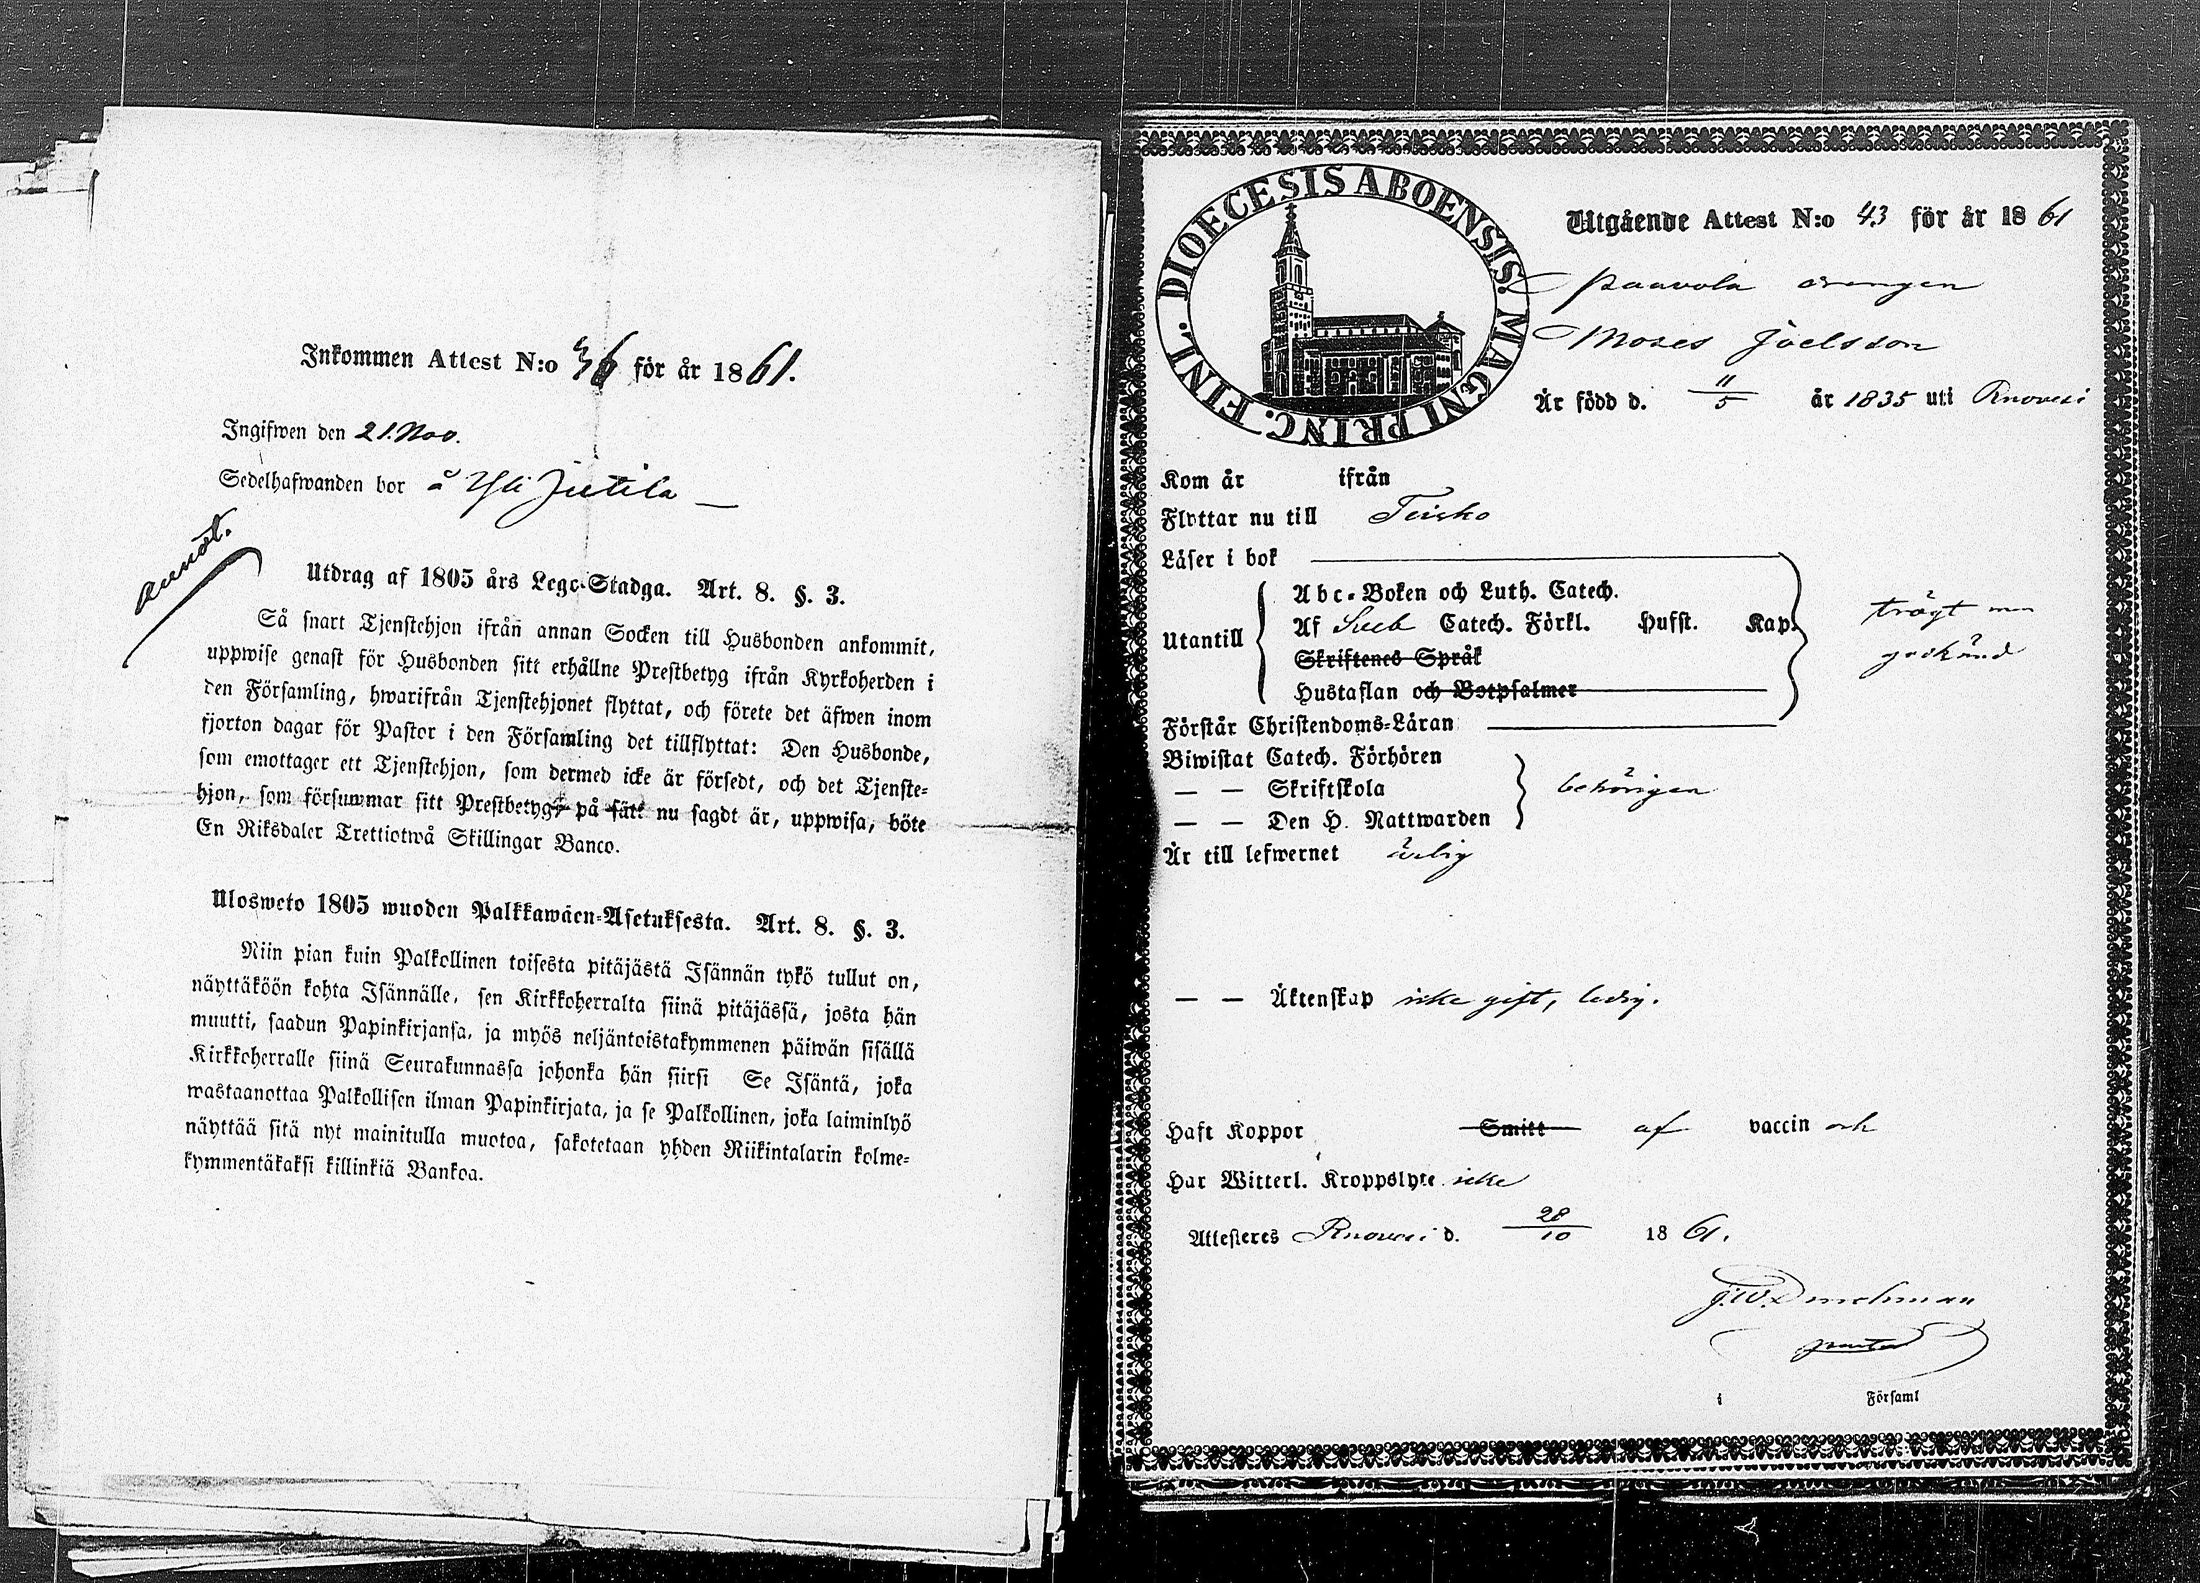 Inkommen Attest N:o 36 för år 1861.
Ingifwen den 21. Nov.
Sedelhafwanden bor å Yli Jutila
annot.
Utdrag af 1805 års Lego-Stadga. Art. 8. §. 3.
Så snart Tjenstehjon ifrån annan Socken till Husbonden ankommit,
uppwise genast för Husbonden sitt erhållne Prestbetyg ifrån Kyrkoherden i
den Församling, hwarifrån Tjenstehjonet flyttat, och förete det äfwen inom
fjorton dagar för Pastor i den Församling det tillflyttat: Den Husbonde,
som emottager ett Tjenstehjon, som dermed icke är försedt, och det Tjenste-
hjon, som försummar sitt Prestbetyg, på sätt nu sagdt är, uppwisa, böte
En Riksdaler Trettiotwå Skillingar Banco.
Ulosweto 1805 wuoden Palkkawäen-Asetuksesta. Art. 8. §. 3.
Niin pian kuin Palkollinen toisesta pitäjästä Isännän tykö tullut on,
näyttäköön kohta Isännälle, sen Kirkkoherralta siinä pitäjässä, josta hän
muutti, saadun Papinkirjansa, ja myös neljäntoistakymmenen päiwän sisällä
Kirkkoherralle siinä Seurakunnassa johonka hän siirsi Se Isäntä, joka
wastaanottaa Palkollisen ilman Papinkirjata, ja se Palkollinen, joka laiminlyö
näyttää sitä nyt mainitulla muotoa, sakotetaan yhden Riikintalarin kolme-
kymmentäkaksi killinkiä Bankoa.
DIOECESIS ABOENSIS. MAGNI PRINC. FINL.
Utgående Attest N:o 43 för år 1861
Paavola drengen
Moses Joelsson
Är född d. 11/5 år 1835 uti Ruovesi
Kom år ifrån
Flyttar nu till Teisko
Läser i bok
Utantill
Abc-Boken och Luth. Catech.
Af Sveb Catech. Förkl. Hufst. Kap.
Skriftenes Språk
Hustaflan och Botpsalmer
trögt men
godkänd
Förstår Christendoms-Läran
Biwistat Catech. Förhören
— — Skriftskola
— — Den H. Nattwarden
behörigen
Är till lefwernet ärlig
— — Äktenskap icke gift, ledig.
Haft Koppor Smitt af vaccin och
Har Witterl. Kroppslyte icke
Attesteres Ruovesi d. 28/10 1861.
J.W. Durchman
pastor
i Församl